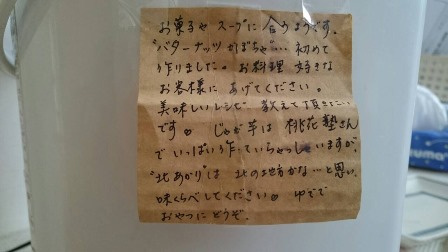 お菓子や スープに 合うようです.
"バターナッツ かぼちゃ"… 初めて
作りました。お料理 好きな
お客様に あげてください。
美味しいレシピ 教えて頂きたい
です♡ じゃが芋は 桃花塾さん
で いっぱい作っていらっしゃいますが、
"北あかり"は 北の地方かな…と思い、
味くらべしてください♡ ゆでて
おやつに どうぞ.